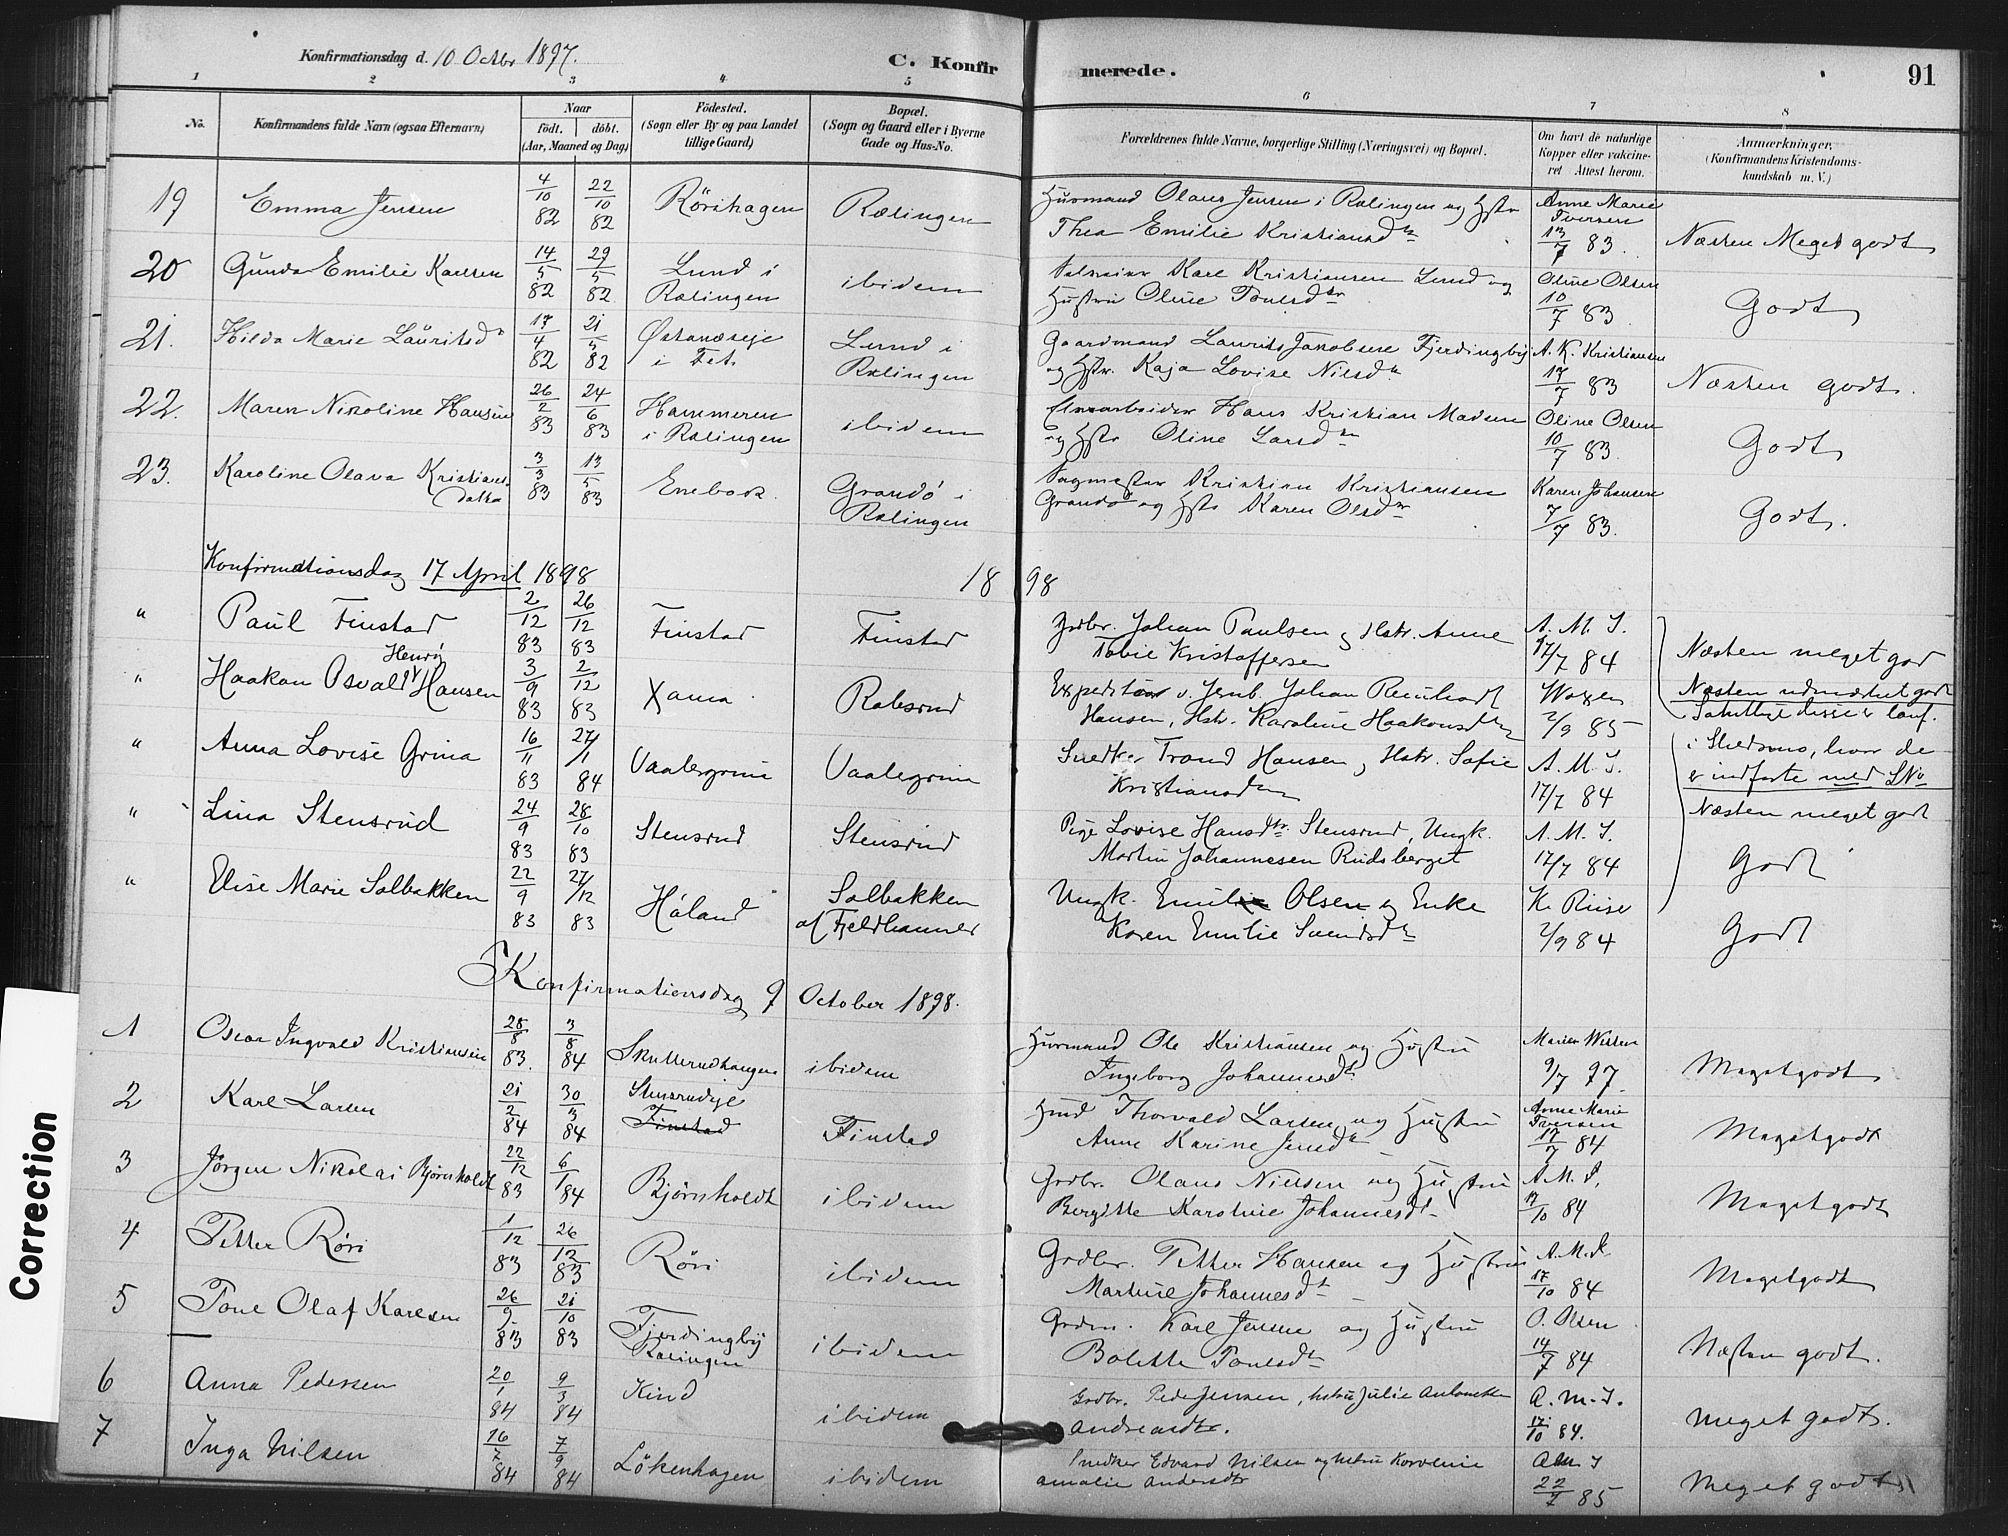 Konfirmationsdag d. 10 Octbr 1897.
C. Konfirmerede.
91
1 2 3 4 5 6 7 8
No.
Konfirmandens fulde Navn (ogsaa Efternavn)
Naar
født. døbt.
(Aar, Maaned og Dag)
Fødested.
(Sogn eller By og paa Landet
tillige Gaard)
Bopæl.
(Sogn og Gaard eller i Byerne
Gade og Hus-No.
Forældrenes fulde Navne, borgerlige Stilling (Næringsvei) og Bopæl.
Om havt de naturlige
Kopper eller vakcine-
ret Attest herom.
Anmærkninger.
(Konfirmandens Kristendoms-
kundskab m. V.)
19 Emma Jensen 4/10 82 22/10 82 Rörihagen Rælingen Husmand Olaus Jensen i Rælingen og Hstr Anne Marie Iversen
Thea Emilie Kristiansdtr 13/7 83. Næsten Meget godt
20 Gunda Emilie Karlsen 14/5 82 29/5 82 Lund i ibidem Karl Kristiansen Lund og Oline Olsen
Rælingen Hustru Oline Poulsdtr 10/7 83 Godt
21. Hilda Marie Lauritsdtr 17/4 82 Østanæseje Lund i Gaardmand Laurits Jakobsen Fjerdingby A. K. Kristiansen
i Fet. Rælingen og Hstr. Kaja Lovise Nilsdtr 17/7 83 Næsten godt.
22. Maren Nikoline Hansen 26/2 83 24/6 83 Hammeren ibidem Elvearbeider Hans Kristian Madsen Oline Olsen
i Rælingen og Hstr Oline Larsdtr 10/7 83 Godt
23. Karoline Olava Kristians- 3/3 83 13/5 83 Enebak. Grandø i Sagmester Kristian Kristiansen Karen Johansen
datter Rælingen Grandø og Hstr Karen Olsdtr 7/7 83. Godt.
Konfirmationsdag 17 April 1898 18 98
" Paul Finstad 2/12 83 26/12 83 Finstad Finstad Gdbr. Johan Paulsen og Hstr. Anne A. M. I.
Tobie Kristoffersen 17/7 84 Næsten meget god
" Haakon Osvald Henry Hansen 3/9 83 2/12 83 Xania Rabsrud Expeditør v. Jernb. Johan Reinhardt
Hansen, Hstr. Karoline Haakonsdtr 2/9 85 Næsten udmærket godt
Samtlige disse er konf.
i Skedsmo, hvor de
er indførte med No
" Anna Lovise Grina 16/11 83 27/1 84 Vaalergrina Vaalegrina Snedker Trond Hansen, Hstr. Sofie A. M. I.
Kristiansdtr 17/7 84 Næsten meget godt
" Lina Stensrud 24/9 83 28/10 83 Stensrud Stensrud Pige Lovise Hansdtr. Stensrud, Ungk. A. M. I.
Martin Johannesen Rudsberget 17/7 84 Godt
" Elise Marie Solbakken 22/9 83 27/12 83 Høland Solbakken Ungk. Emil Olsen og Enke K. Riise
af Fjeldhammer Karen Emilie Svendsdtr 2/9 84 Godt
Konfirmationsdag 9 October 1898.
1 Oscar Ingvald Kristiansen 28/8 83. 3/8 84 Skullerudhaugen ibidem Husmand Ole Kristiansen og Hustru
Ingeborg Johannesdt. 9/7 97. Megetgodt
2 Karl Larsen 21/2 84 30/3 84 Stensrudeje Finstad Hmd Thorvald Larsen og Hustru Anne Marie Iversen
Finstad Anne Karine Jensdtr 17/7 84 Megetgodt
3 Jørgen Nikolai Bjørnholdt 22/12 83 6/1 84 Bjørnholdt ibidem Grdbr. Olaus Nielsen og Hustru A. M. I.
Bergitte Karoline Johannesdt 17/10 84 Megetgodt
4 Petter Røri 1/12 83 26/12 83 Røri ibidem Grdbr. Petter Hansen og Hustru A. M. I.
Martine Johannesdt 17/10 84 Megetgodt
5 Tone Olaf Karlsen 26/9 83 21/10 83 Fjerdingby ibidem Grdm. Karl Jensen og Hustru O. Olsen
Rælingen Bolette Poulsdtr 14/7 84 Næsten godt.
6 Anna Pedersen 20/1 84 9/3 84 Kind ibidem Grdbr. Peder Jensen, hstru Julie Antonette A. M. I.
Andreasdtr. 17/10 84. meget godt.
7 Inga Nilsen 16/7 84 7/9 84 Lökenhagen ibidem Snedker Edvard Nilsen og hstru Korneline A M I
Amalie Andersdtr 22/7 85 Meget godt
Correction